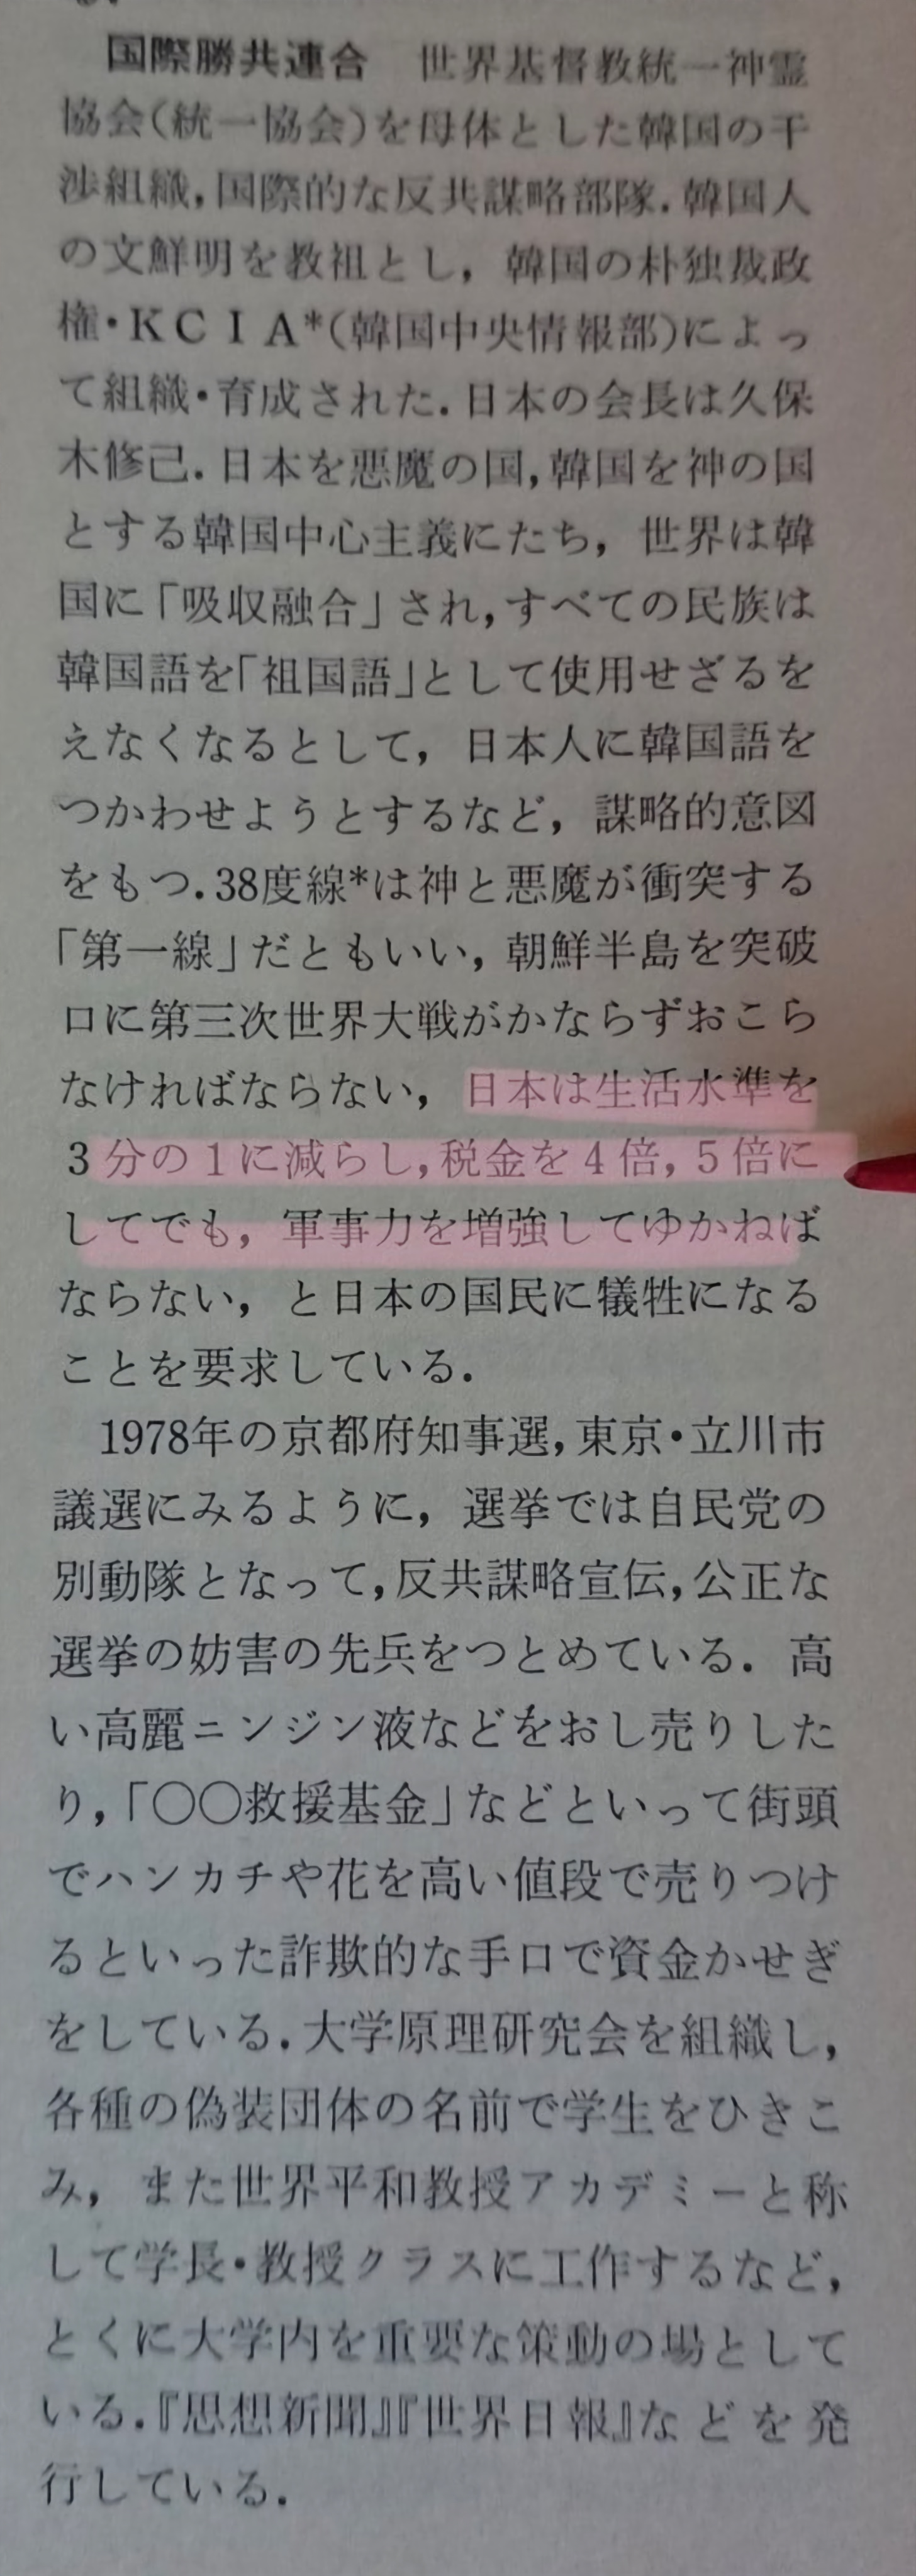 国際勝共連合　世界基督教統一神霊
協会(統一協会)を母体とした韓国の干
渉組織,国際的な反共謀略部隊.韓国人
の文鮮明を教祖とし，韓国の朴独裁政
権・KCIA*(韓国中央情報部)によっ
て組織・育成された.日本の会長は久保
木修己.日本を悪魔の国,韓国を神の国
とする韓国中心主義にたち，世界は韓
国に「吸収融合」され,すべての民族は
韓国語を「祖国語」として使用せざるを
えなくなるとして，日本人に韓国語を
つかわせようとするなど，謀略的意図
をもつ.38度線*は神と悪魔が衝突する
「第一線」だともいい，朝鮮半島を突破
口に第三次世界大戦がかならずおこら
なければならない，日本は生活水準を
3分の1に減らし,税金を4倍,5倍に
してでも，軍事力を増強してゆかねば
ならない，と日本の国民に犠牲になる
ことを要求している.
1978年の京都府知事選,東京・立川市
議選にみるように，選挙では自民党の
別動隊となって,反共謀略宣伝,公正な
選挙の妨害の先兵をつとめている.高
い高麗ニンジン液などをおし売りした
り,「〇〇救援基金」などといって街頭
でハンカチや花を高い値段で売りつけ
るといった詐欺的な手口で資金かせぎ
をしている.大学原理研究会を組織し,
各種の偽装団体の名前で学生をひきこ
み，また世界平和教授アカデミーと称
して学長・教授クラスに工作するなど,
とくに大学内を重要な策動の場として
いる.『思想新聞』『世界日報』などを発
行している.